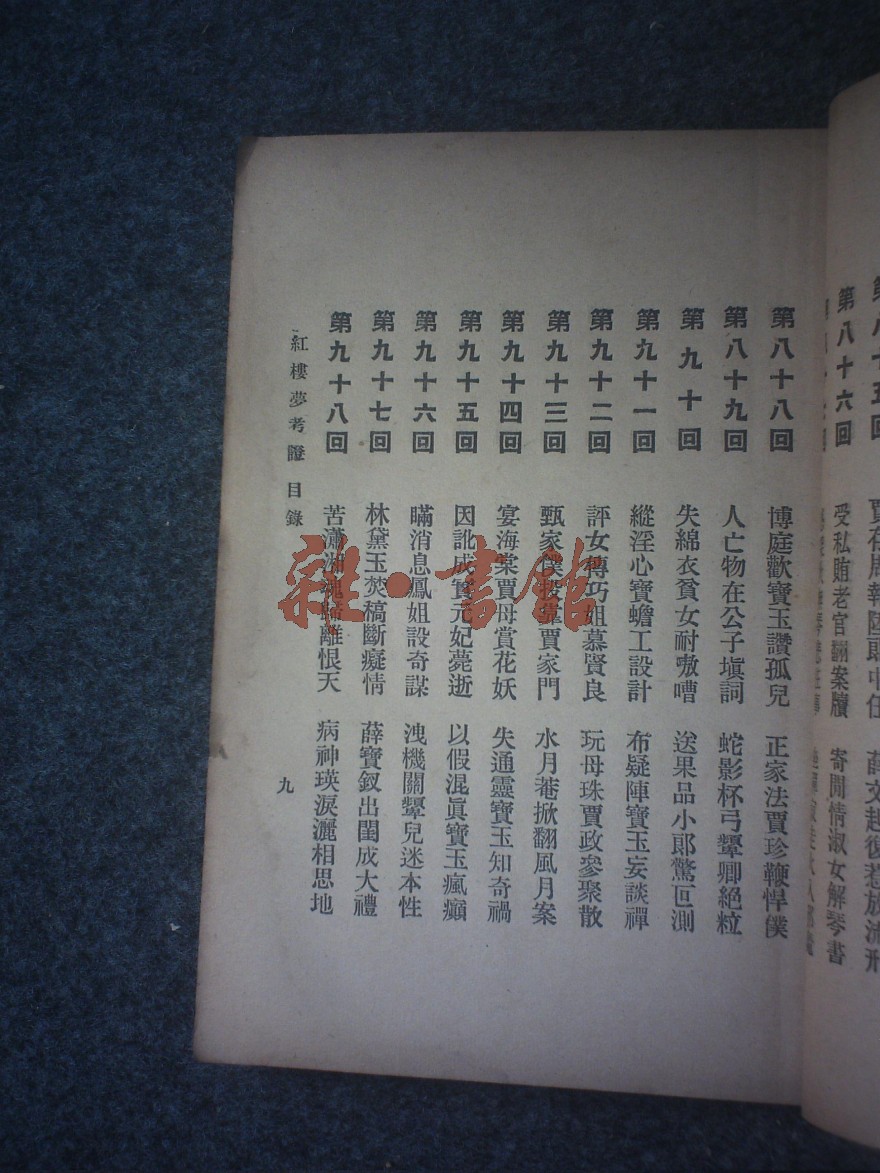 第八十六回 受私賄老官翻案牘 寄閒情淑女解琴書
第八十八回 博庭歡寶玉讚孤兒 正家法賈珍鞭悍僕
第八十九回 人亡物在公子塡詞 蛇影杯弓顰卿絕粒
第九十回 失綿衣貧女耐嗷嘈 送果品小郎驚叵測
第九十一回 縱淫心寶蟾工設計 布疑陣寶玉妄談禪
第九十二回 評女傳巧姐慕賢良 玩母珠賈政參聚散
第九十三回 甄家僕投靠賈家門 水月菴掀翻風月案
第九十四回 宴海棠賈母賞花妖 失通靈寶玉知奇禍
第九十五回 因訛成實元妃薨逝 以假混眞寶玉瘋癲
第九十六回 瞞消息鳳姐設奇謀 洩機關顰兒迷本性
第九十七回 林黛玉焚稿斷癡情 薛寶釵出閨成大禮
第九十八回 苦瀟湘魂歸離恨天 病神瑛淚灑相思地
紅樓夢考證 目錄
九
雜·書館